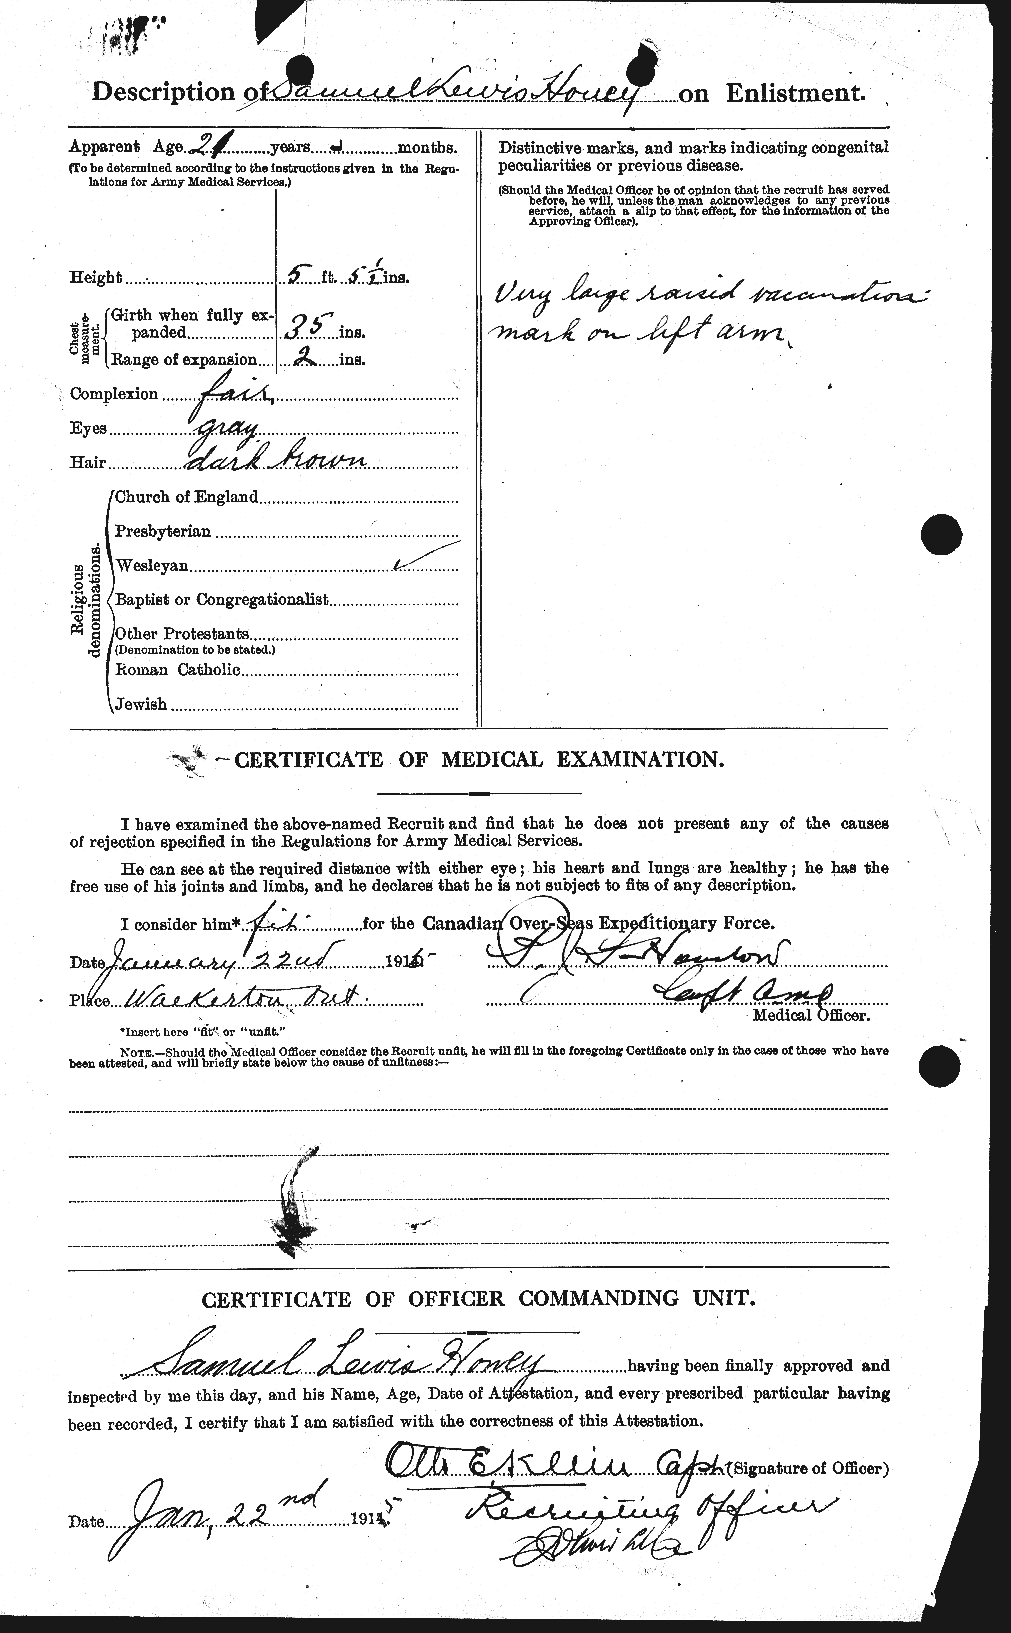 Description of Samuel Lewis Honey on Enlistment.
Apparent Age 21 years months.
(To be determined according to the instructions given in the Regu-
lations for Army Medical Services.)
Height 5 ft. 5½ ins.
Chest measure-ment.
Girth when fully ex-
panded 35 ins.
Range of expansion 2 ins.
Complexion fair,
Eyes gray
Hair dark brown
Religious denominations.
Church of England
Presbyterian
Wesleyan ✓
Baptist or Congregationalist
Other Protestants
(Denomination to be stated.)
Roman Catholic
Jewish
Distinctive marks, and marks indicating congenital
peculiarities or previous disease.
(Should the Medical Officer be of opinion that the recruit has served
before, he will, unless the man acknowledges to any previous
service, attach a slip to that effect, for the information of the
Approving Officer).
Very large raised vaccination
mark on left arm.
CERTIFICATE OF MEDICAL EXAMINATION.
I have examined the above-named Recruit and find that he does not present any of the causes
of rejection specified in the Regulations for Army Medical Services.
He can see at the required distance with either eye; his heart and lungs are healthy; he has the
free use of his joints and limbs, and he declares that he is not subject to fits of any description.
I consider him* fit for the Canadian Over-Seas Expeditionary Force.
Date January 22nd 1915
Place Walkerton Ont.
Medical Officer.
*Insert here "fit" or "unfit."
NOTE.—Should the Medical Officer consider the Recruit unfit, he will fill in the foregoing Certificate only in the case of those who have
been attested, and will briefly state below the cause of unfitness:—
CERTIFICATE OF OFFICER COMMANDING UNIT.
Samuel Lewis Honey having been finally approved and
inspected by me this day, and his Name, Age, Date of Attestation, and every prescribed particular having
been recorded, I certify that I am satisfied with the correctness of this Attestation.
Otto E. Klein Capt. (Signature of Officer)
Recruiting Officer
Date Jan, 22nd 1915